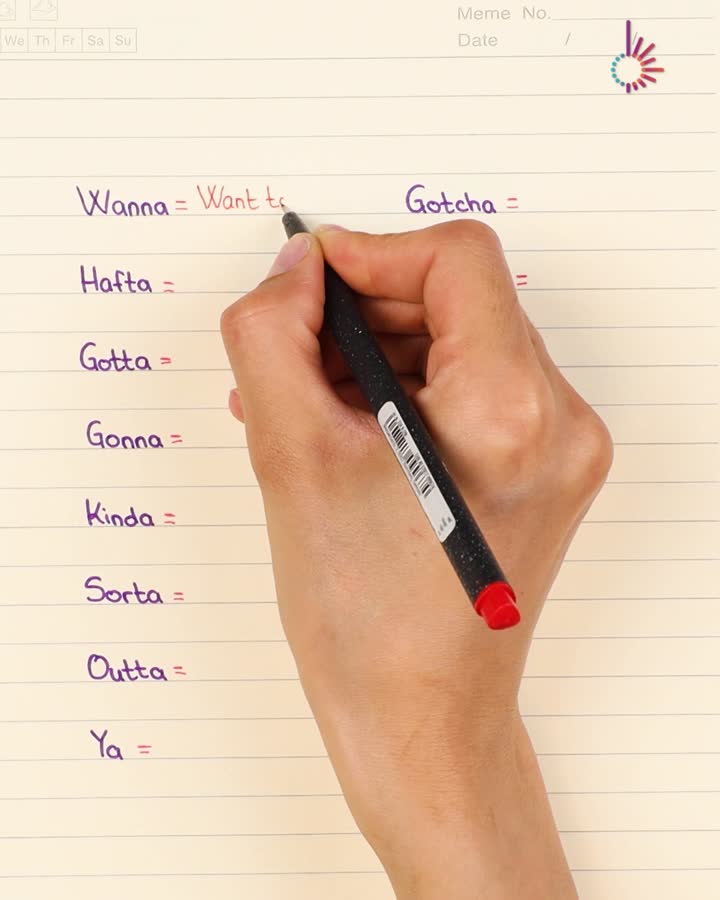 Meme No.
Date / /
We Th Fr Sa Su
Wanna = Want to
Gotcha =
Hafta =
=
Gotta =
Gonna =
Kinda =
Sorta =
Outta =
Ya =